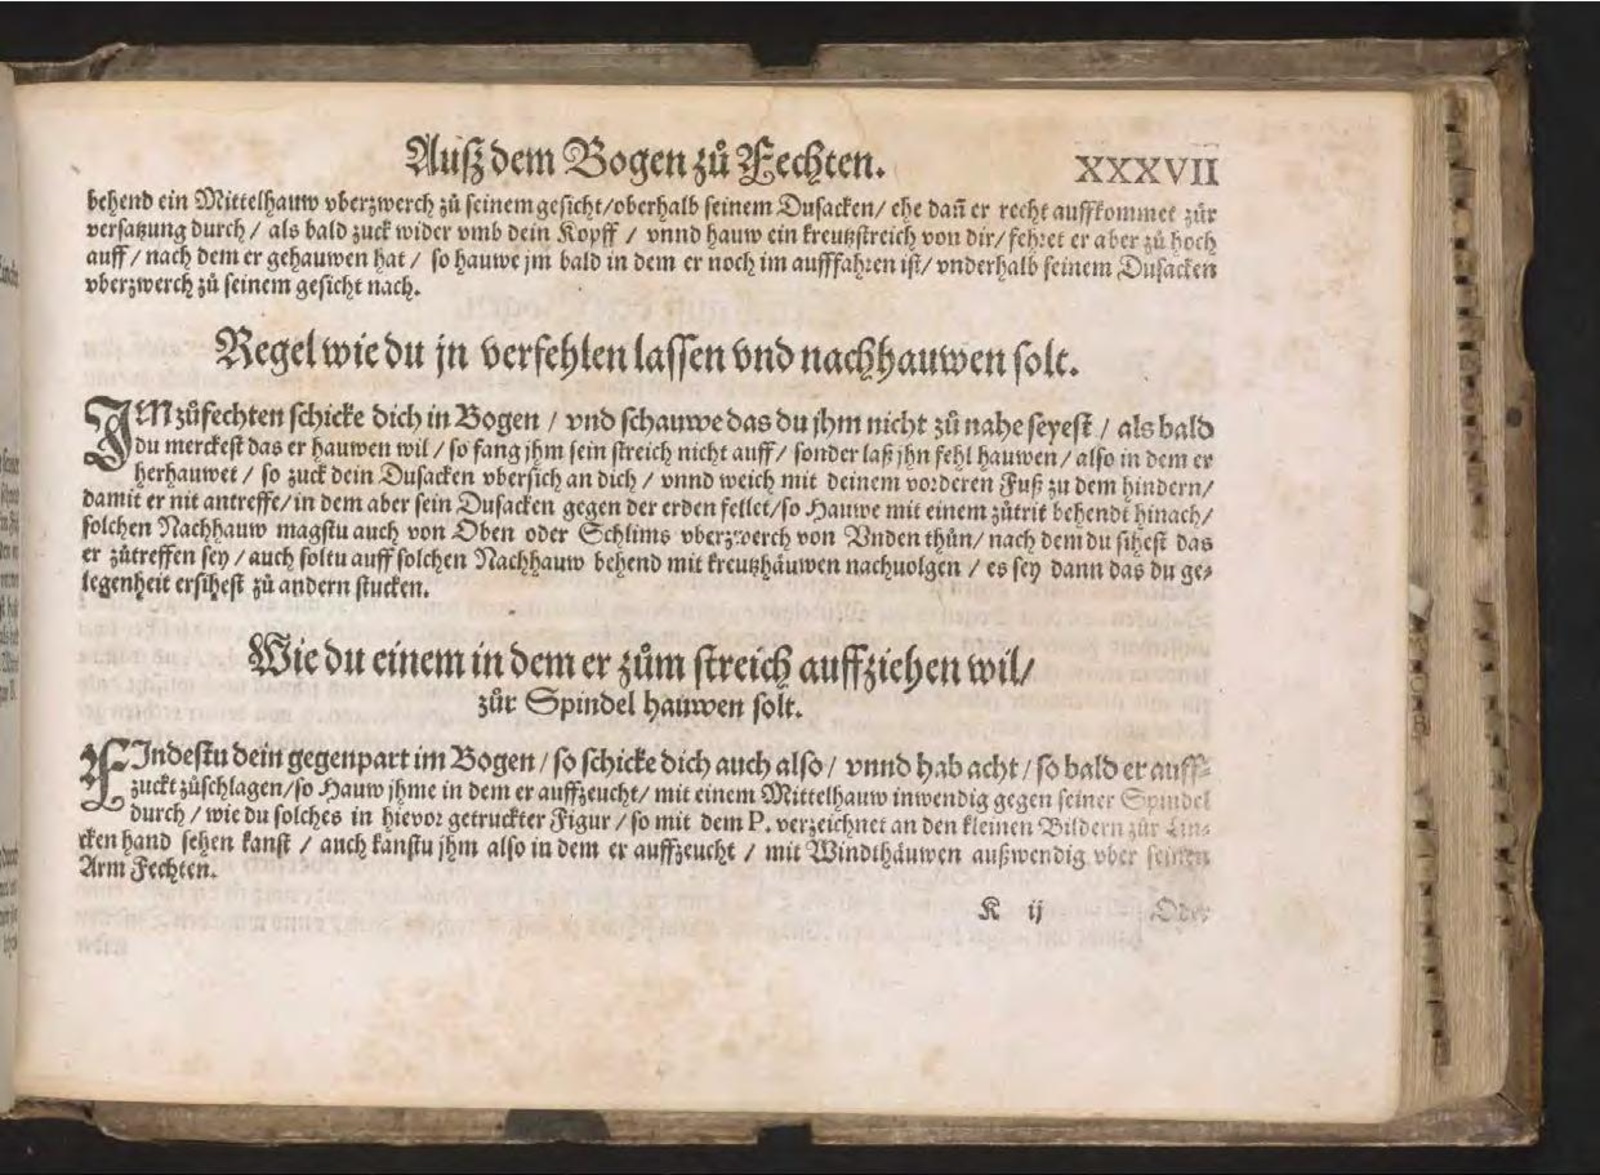 Außdem Bogen zů Fechten. XXXVII
behend ein Mittelhauw vberzwerch zů seinem gesicht/oberhalb seinem Dusacken/ ehe dañ er recht auffkommet zůr
versatzung durch/ als bald zuck wider vmb dein Kopff / vnnd hauw ein kreutzstreich von dir/ fehret er aber zů hoch
auff/ nach dem er gehauwen hat / so hauwe jm bald in dem er noch im aufffahren ist/ vnderhalb seinem Dusacken
vberzwerch zů seinem gesicht nach.
Regel wie du jn verfehlen lassen vnd nachhauwen solt.
IM zůfechten schicke dich in Bogen / vnd schauwe das du jhm nicht zů nahe seyest / als bald
du merckest das er hauwen wil / so fang jhm sein streich nicht auff/ sonder laß jhn fehl hauwen/ also in dem er
herhauwet / so zuck dein Dusacken vbersich an dich / vnnd weich mit deinem vorderen Fuß zu dem hindern/
damit er nit antreffe/in dem aber sein Dusacken gegen der erden fellet/so Hauwe mit einem zůtrit behendt hinach/
solchen Nachhauw magstu auch von Oben oder Schlims vberzwerch von Vnden thůn/ nach dem du sihest das
er zůtreffen sey / auch soltu auff solchen Nachhauw behend mit kreutzhäuwen nachuolgen / es sey dann das du ge⸗
legenheit ersihest zů andern stucken.
Wie du einem in dem er zům streich auffziehen wil/
zůr Spindel hauwen solt.
FIndestu dein gegenpart im Bogen / so schicke dich auch also / vnnd hab acht / so bald er auff⸗
zuckt zůschlagen/so Hauw jhme in dem er auffzeucht/ mit einem Mittelhauw inwendig gegen seiner Spindel
durch / wie du solches in hievor getruckter Figur / so mit dem P. verzeichnet an den kleinen Bildern zůr Lin⸗
cken hand sehen kanst / auch kanstu jhm also in dem er auffzeucht / mit Windthäuwen außwendig vber seinen
Arm Fechten.
K ij Oder